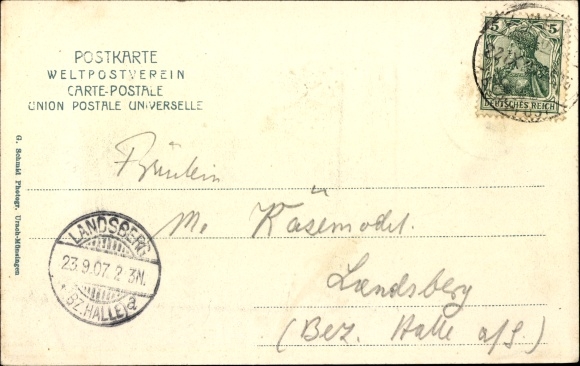 POSTKARTE
WELTPOSTVEREIN
CARTE-POSTALE
UNION POSTALE UNIVERSELLE
5 5
DEUTSCHES REICH
G. Schmid Photogr. Urach-Münsingen
Fräulein
M. Käsemodel.
Landsberg
(Bez. Halle a/S.)
LANDSBERG
23.9.07. 2-3N.
(BZ. HALLE) a